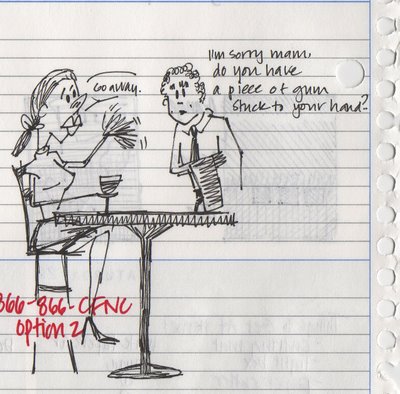 Go away.
I'm sorry mam,
do you have
a piece of gum
stuck to your hand?
866-866-CFNC
option 2